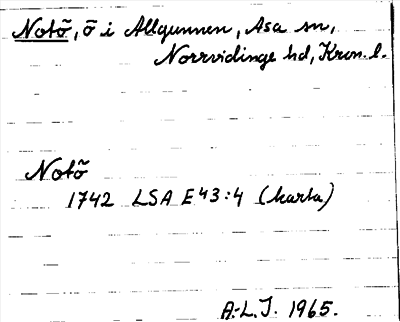 Notö, ö i Allgunnen, Asa sn,
Norrvidinge hd, Kron. l.
Notö
1742 LSA E43:4 (karta)
A.-L.J. 1965.